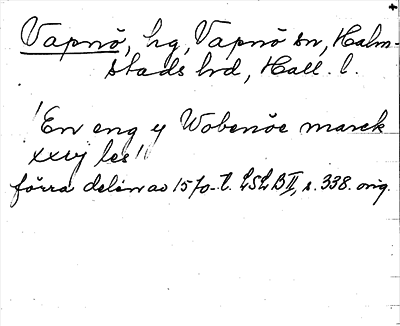 Vapnö, hg, Vapnö sn, Halm-
stads hd, Hall. l.
"En eng y Wobenöe marck
xxvj les"
förra delen av 1570-t. LSLB II, s. 338. orig.